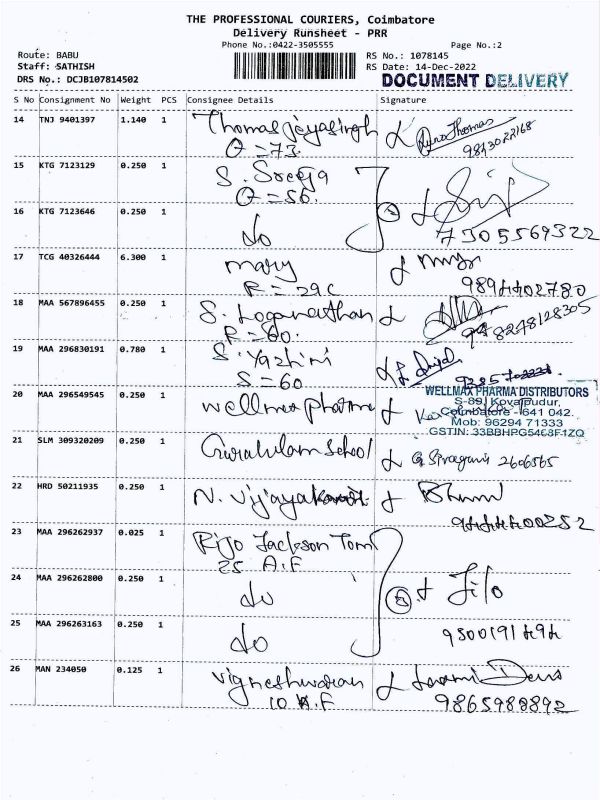 THE PROFESSIONAL COURIERS, Coimbatore
Delivery Runsheet - PRR
Phone No.:0422-3505555 Page No.:2
Route: BABU RS No.: 1078145
Staff: SATHISH RS Date: 14-Dec-2022
DRS No.: DCJB107814502 DOCUMENT DELIVERY
S No Consignment No Weight PCS Consignee Details Signature
14 TNJ 9401397 1.140 1 Thomas jeyasingh
O = 73 9843022168
15 KTG 7123129 0.250 1 S. Sreeja
O = 56.
16 KTG 7123646 0.250 1 do 7305569322
17 TCG 40326444 6.300 1 mary
R = 29C 9894402780
18 MAA 567896455 0.250 1 S. Loganathan
R = 60. 8248128305
19 MAA 296830191 0.780 1 S. Yazhini
S = 60
20 MAA 296549545 0.250 1 wellmax pharma
WELLMAX PHARMA DISTRIBUTORS
S-89, Kovaipudur,
Coimbatore - 641 042.
Mob: 96294 71333
GSTIN: 33BBHPG5468F1ZQ
21 SLM 309320209 0.250 1 Gurukulam School 2606565
22 HRD 50211935 0.250 1 N. Vijayakumar
9444400252
23 MAA 296262937 0.025 1 Rijo Jackson Tom
25 A.F
24 MAA 296262800 0.250 1 do Jilo
25 MAA 296263163 0.250 1 do 9500191494
26 MAN 234050 0.125 1 Vigneshwaran
10 A.F 9865988892